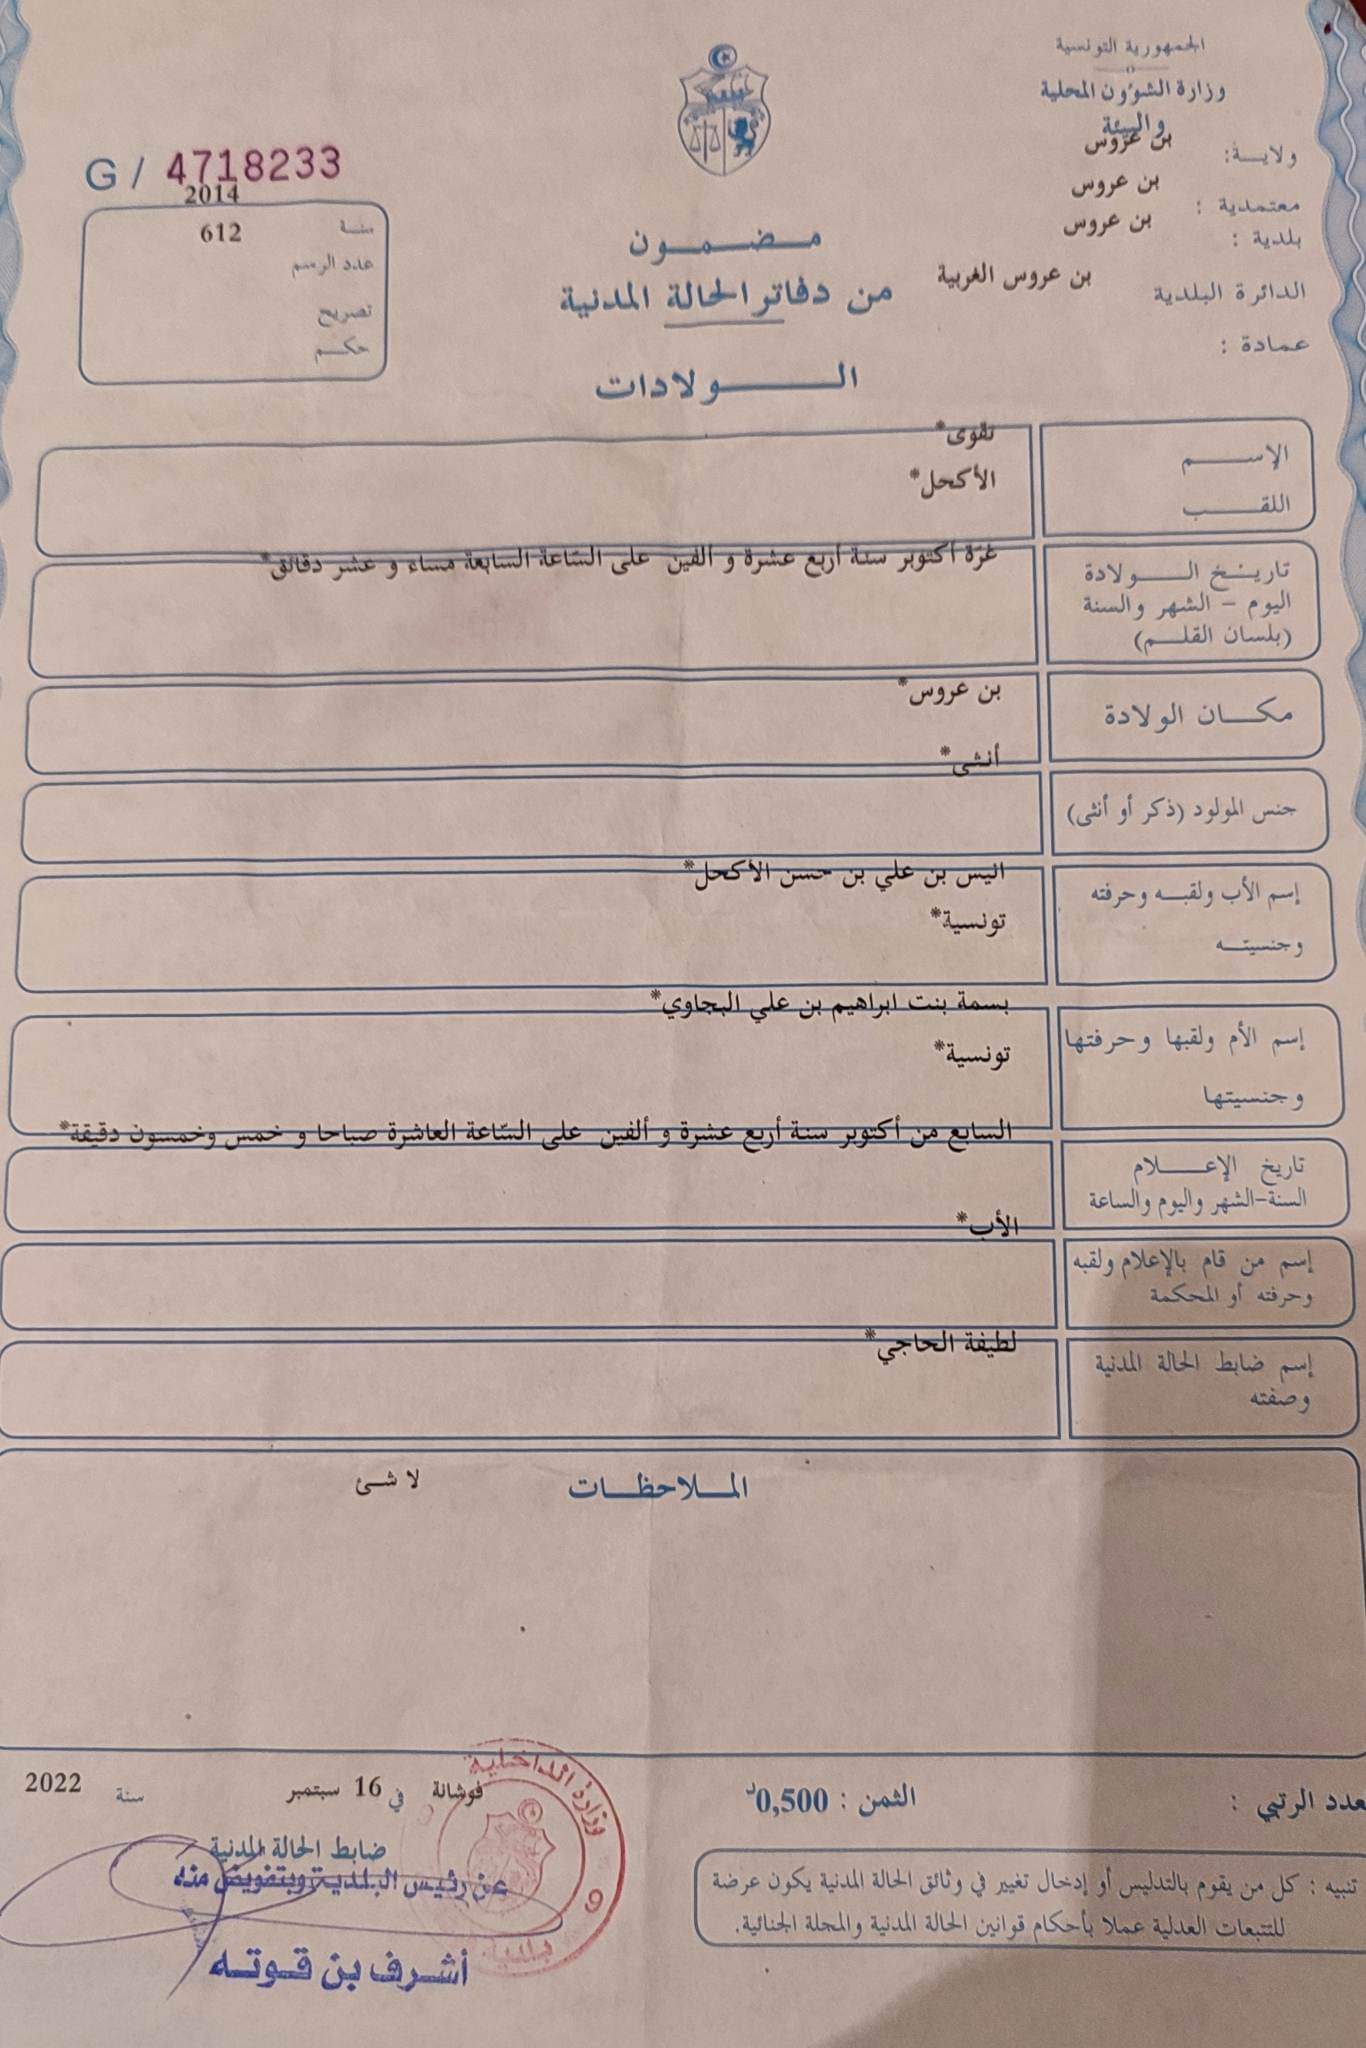 الجمهورية التونسية
وزارة الشؤون المحلية
والبيئة
ولايـة: بن عروس
معتمدية : بن عروس
بلدية : بن عروس
الدائرة البلدية بن عروس الغربية
عمادة :
G / 4718233
سنـة 2014
عدد الرسم 612
تصريح
حكـم
مـضـمـون
من دفاتر الحالة المدنية
الـولادات
الإسـم تقوى*
اللقـب الأكحل*
تاريـخ الـولادة
اليوم - الشهر والسنة
(بلسان القلـم)
غرّة أكتوبر سنة أربع عشرة و ألفين على السّاعة السابعة مساء و عشر دقائق*
مكـان الولادة بن عروس*
جنس المولود (ذكر أو أنثى) أنثى*
إسم الأب ولقبـه وحرفته اليس بن علي بن حسن الأكحل*
وجنسيتـه تونسية*
إسم الأم ولقبها وحرفتها بسمة بنت ابراهيم بن علي البجاوي*
وجنسيتها تونسية*
تاريخ الإعـلام
السنة-الشهر واليوم والساعة
السابع من أكتوبر سنة أربع عشرة و ألفين على السّاعة العاشرة صباحا و خمس وخمسون دقيقة*
إسم من قام بالإعلام ولقبه
وحرفته أو المحكمة
الأب*
إسم ضابط الحالة المدنية
وصفته
لطيفة الحاجي*
المـلاحظـات لا شئ
عدد الرتبي :
الثمن : 0,500د
فوشانة في 16 سبتمبر سنة 2022
ضابط الحالة المدنية
عن رئيس البلدية وبتفويض منه
أشرف بن قوته
وزارة الداخلية
بلدية
تنبيه : كل من يقوم بالتدليس أو إدخال تغيير في وثائق الحالة المدنية يكون عرضة
للتتبعات العدلية عملا بأحكام قوانين الحالة المدنية والمجلة الجنائية.